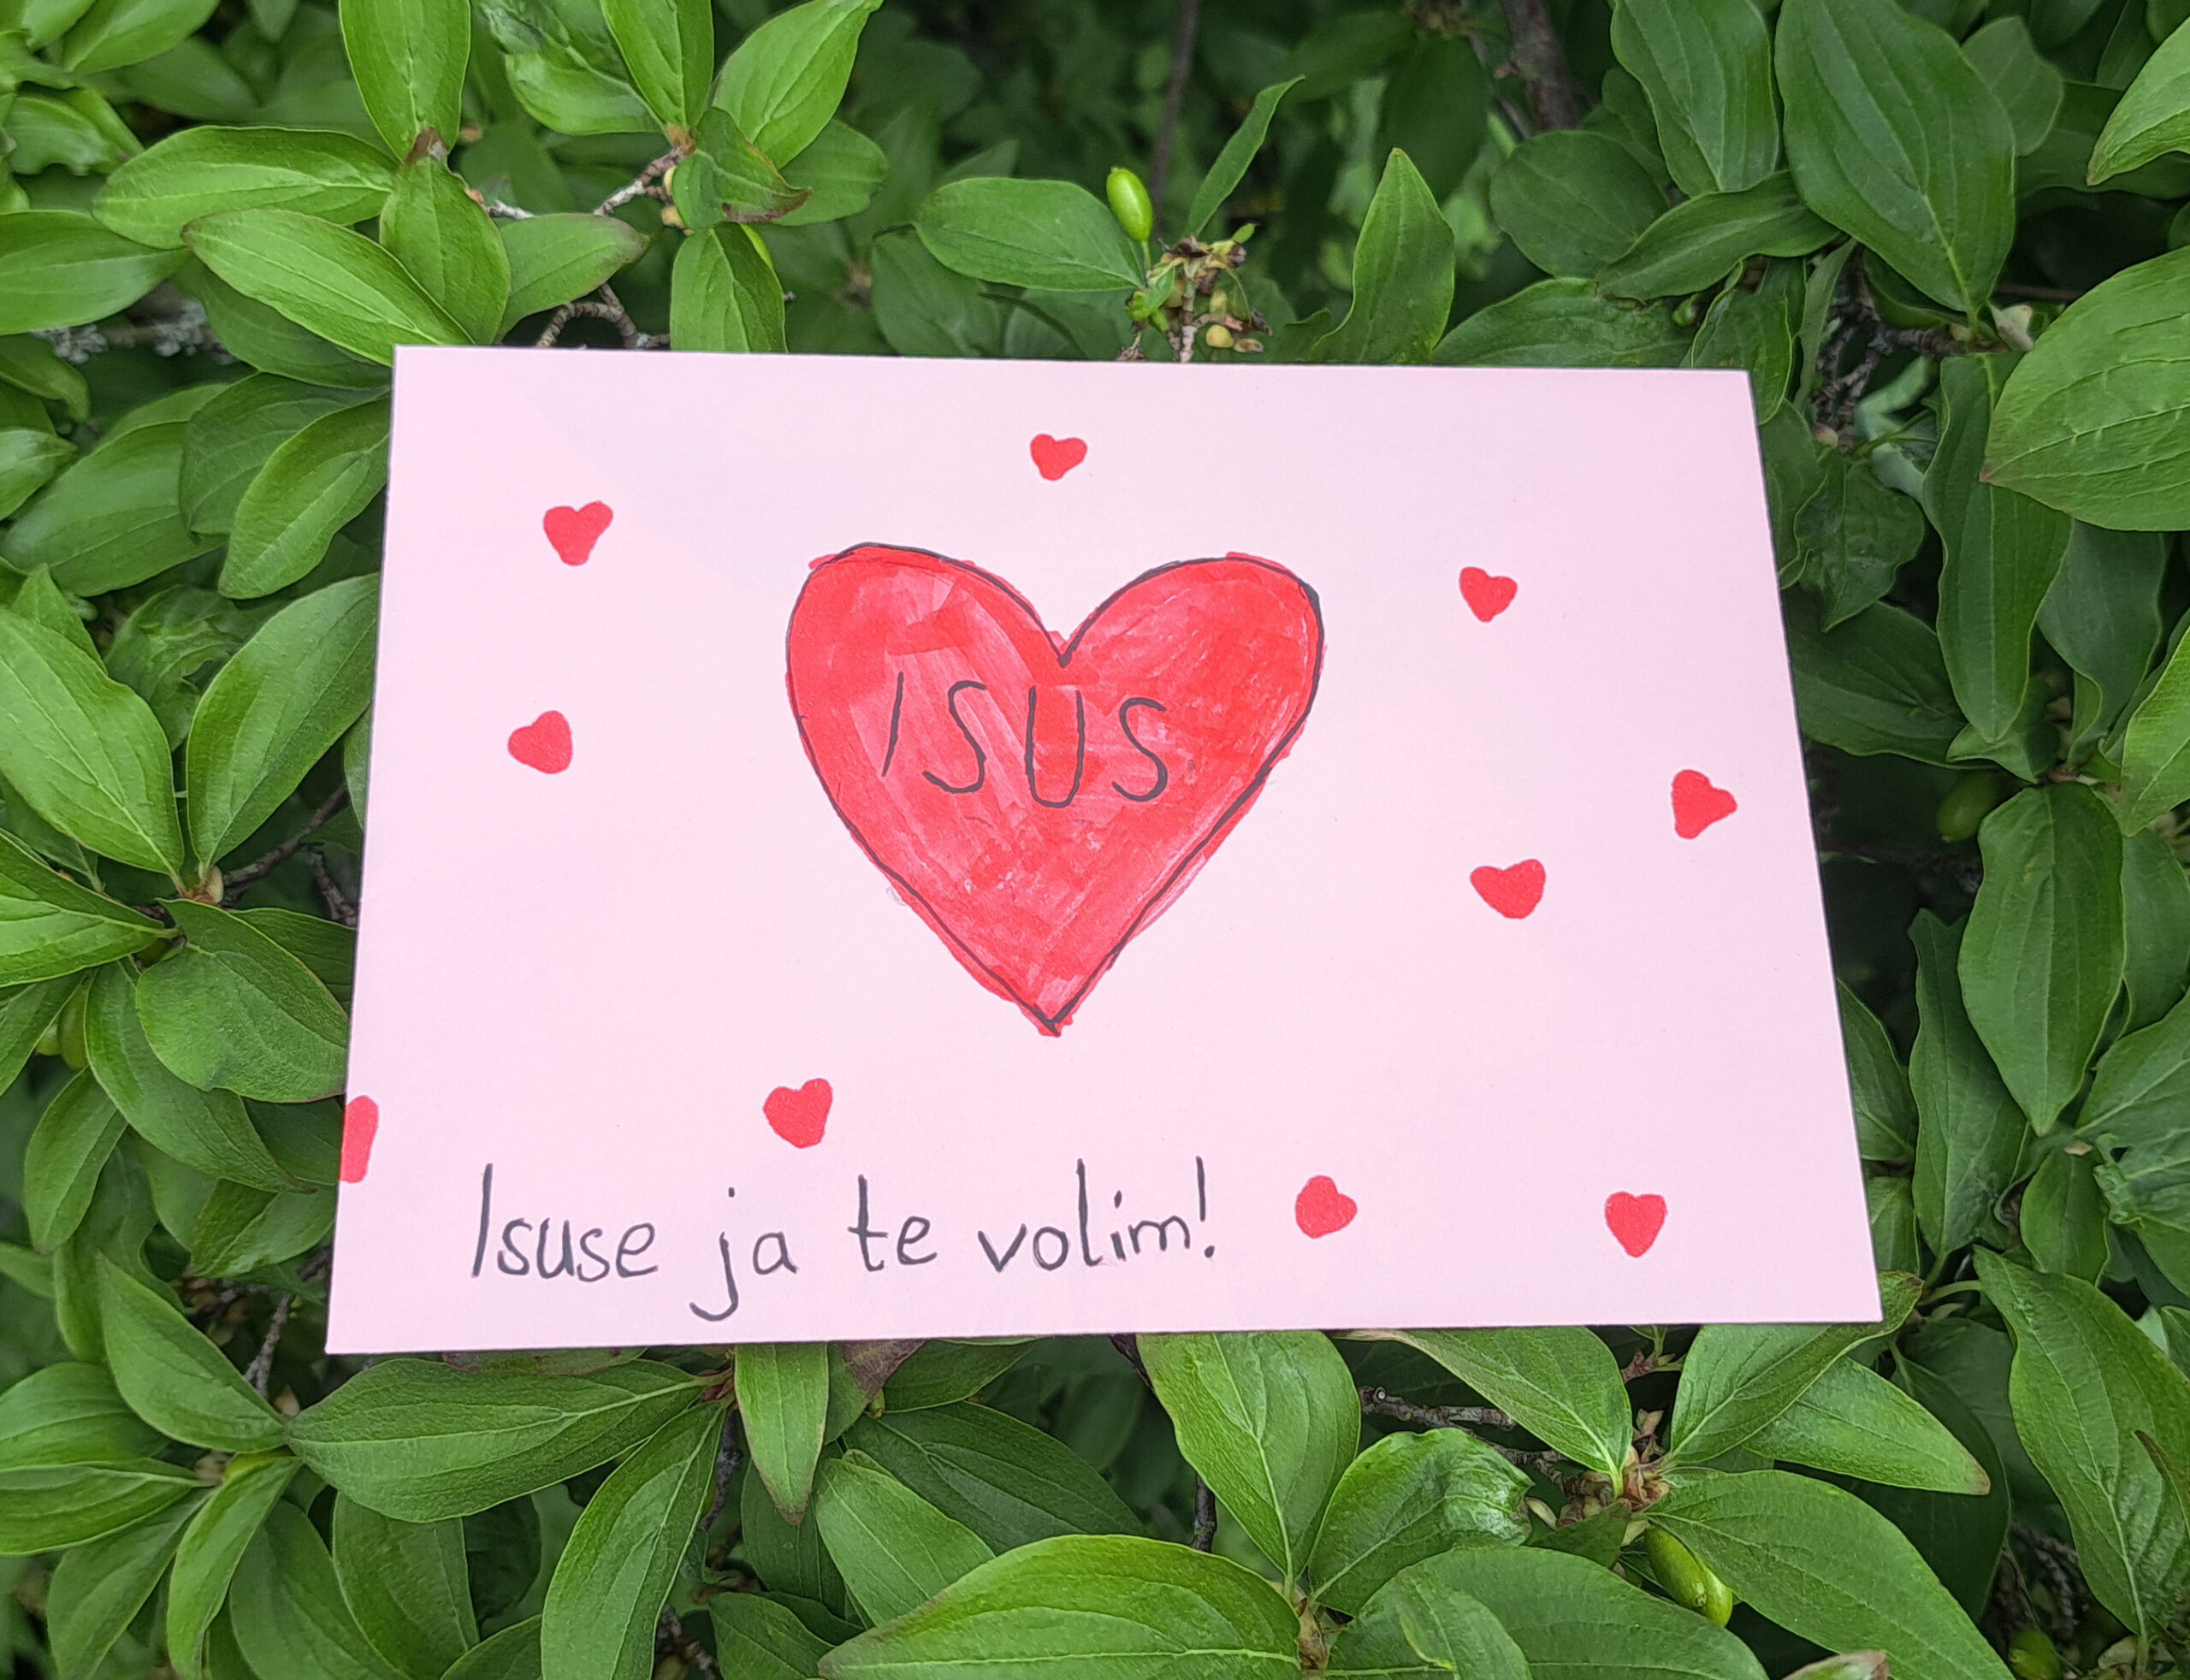 ISUS
Isuse ja te volim!